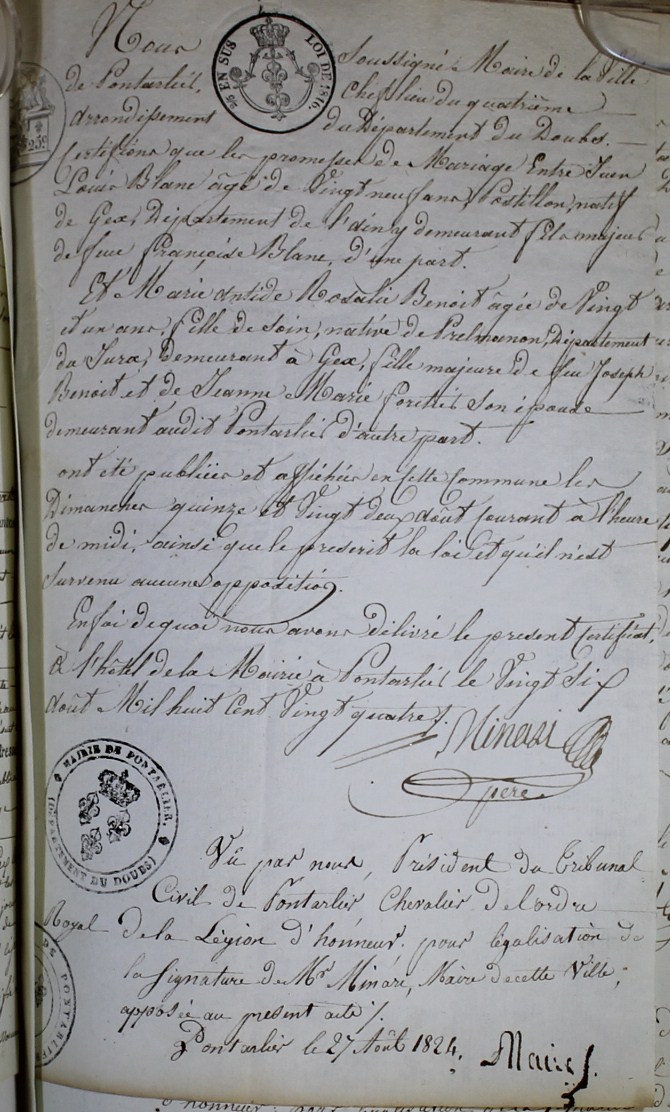 Nous
EN SUS
LOI DE 1816
25c
Soussigné Maire de la Ville
de Pontarlier,
Cheflieu du quatrième
Arrondissement
du Département du Doubs.
Certifions que les promesses de Mariage Entre Jean
Louis Blanc âgé de Vingt neuf ans, Postillon, natif
de Gex, Département de l'ain, y demeurant fils majeur
de feu françoise Blanc, d'une part.
Et Marie Antide Rosalie Benoit âgée de Vingt
et un ans, fille de Soin, native de Prelmanon, Département
du Jura, Demeurant à Gex, fille majeure de feu Joseph
Benoit et de Jeanne Marie forettes Son épouse
demeurant audit Pontarlier d'autre part.
ont été publiées et affichées en Cette Commune les
Dimanches quinze et Vingt deux Août Courant à l'heure
de midi, ainsi que le prescrit la loi et qu'il n'est
Survenu aucune opposition.
En foi de quoi nous avons délivré le present Certificat,
à l'hôtel de la Mairie à Pontarlier le Vingt Six
Août Mil huit Cent Vingt quatre.
Minari
pere
MAIRIE DE PONTARLIER.
(DÉPARTEMENT DU DOUBS)
Vu par nous, Président du Tribunal
Civil de Pontarlier Chevalier de l'ordre
Royal de la Légion d'honneur. pour légalisation de
la Signature de Mr Minari, Maire de cette Ville,
apposée au present acte /.
Pontarlier le 27 Août 1824.
Maire